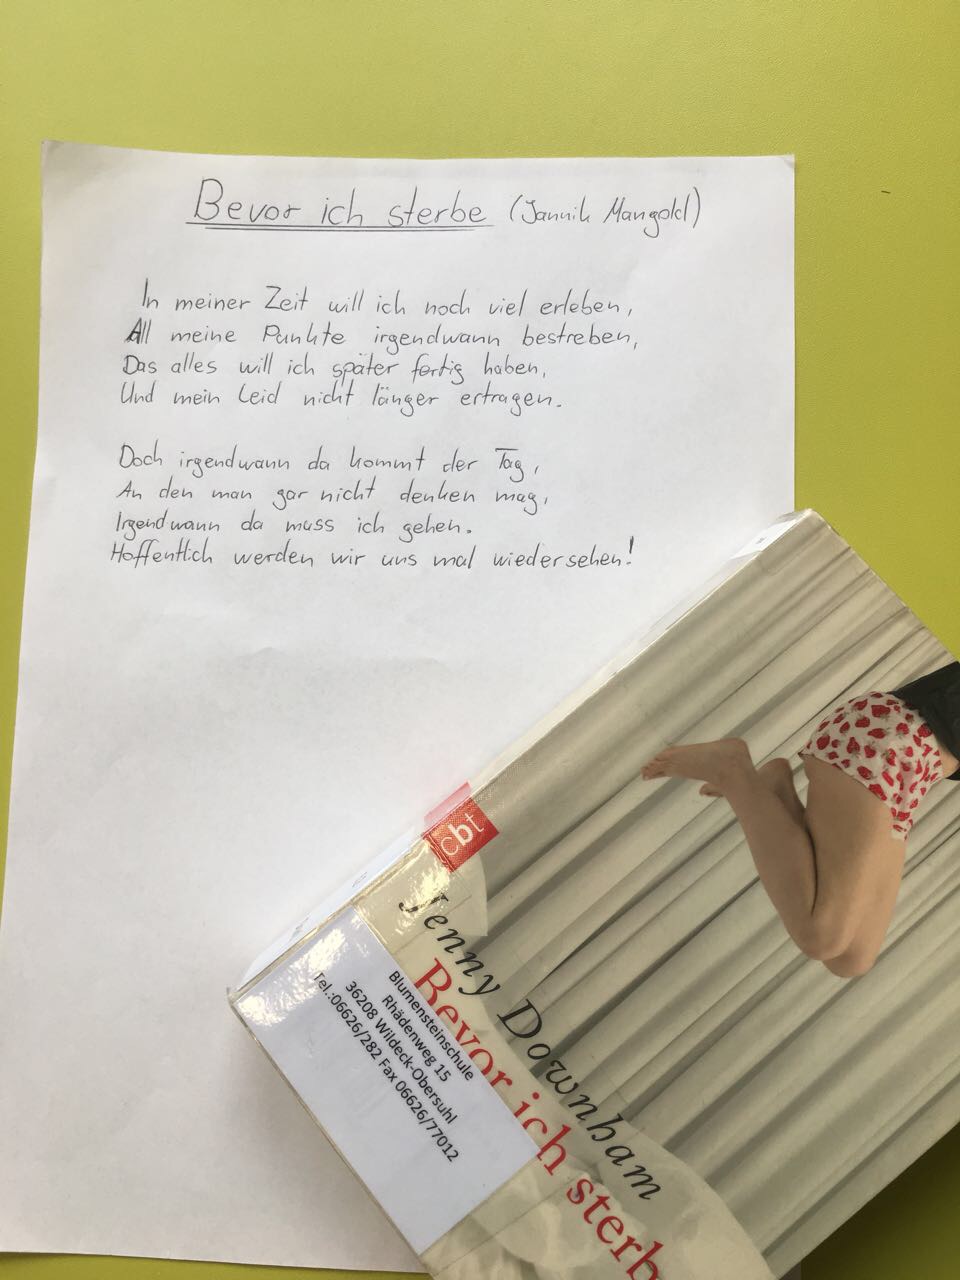 Bevor ich sterbe (Jannik Mangold)
In meiner Zeit will ich noch viel erleben,
All meine Punkte irgendwann bestreben,
Das alles will ich später fertig haben,
Und mein Leid nicht länger ertragen.
Doch irgendwann da kommt der Tag,
An den man gar nicht denken mag,
Irgendwann da muss ich gehen.
Hoffentlich werden wir uns mal wiedersehen!
cbt
Jenny Downham
Bevor ich sterb
Blumensteinschule
Rhädenweg 15
36208 Wildeck-Obersuhl
Tel.:06626/282 Fax 06626/77012